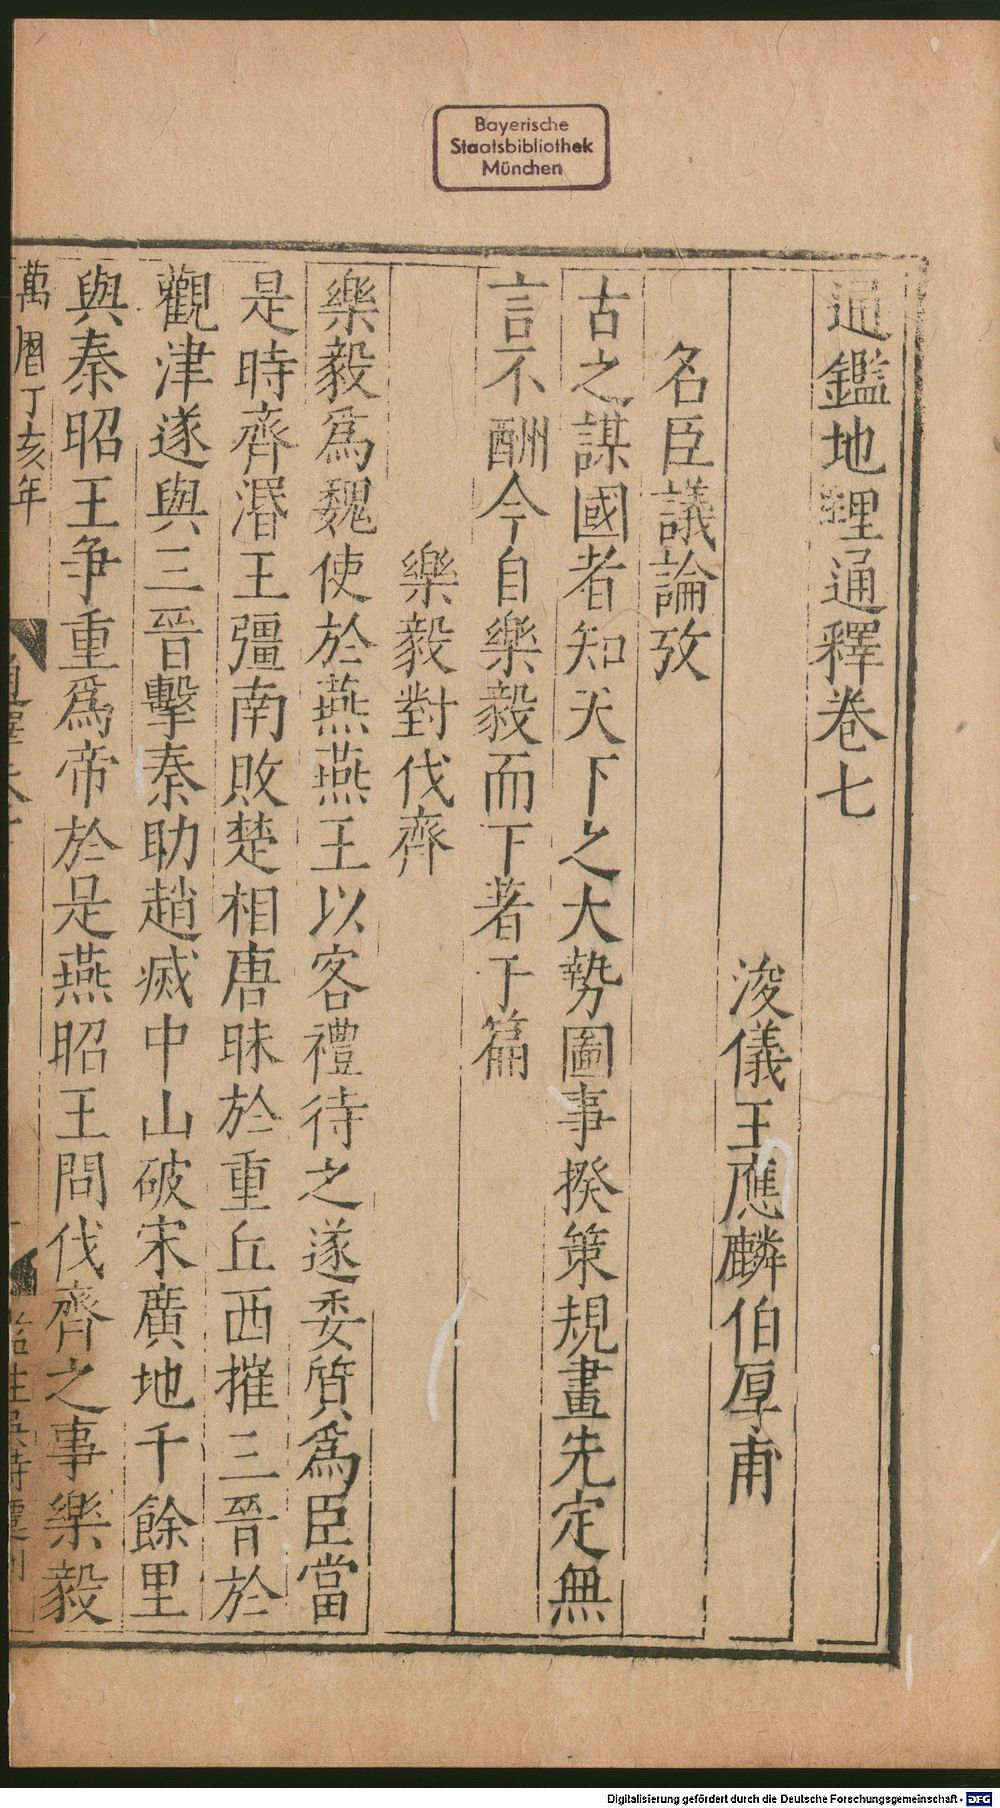 Bayerische
Staatsbibliothek
München
通鑑地理通釋卷七
浚儀王應麟伯厚甫
名臣議論攷
古之謀國者知天下之大勢圖事揆策規畫先定無
言不酬今自樂毅而下著于篇
樂毅對伐齊
樂毅爲魏使於燕燕王以客禮待之遂委質爲臣當
是時齊湣王彊南敗楚相唐昧於重丘西摧三晉於
觀津遂與三晉擊秦助趙滅中山破宋廣地千餘里
與秦昭王争重爲帝於是燕昭王問伐齊之事樂毅
萬曆丁亥年
Digitalisierung gefördert durch die Deutsche Forschungsgemeinschaft - DFG